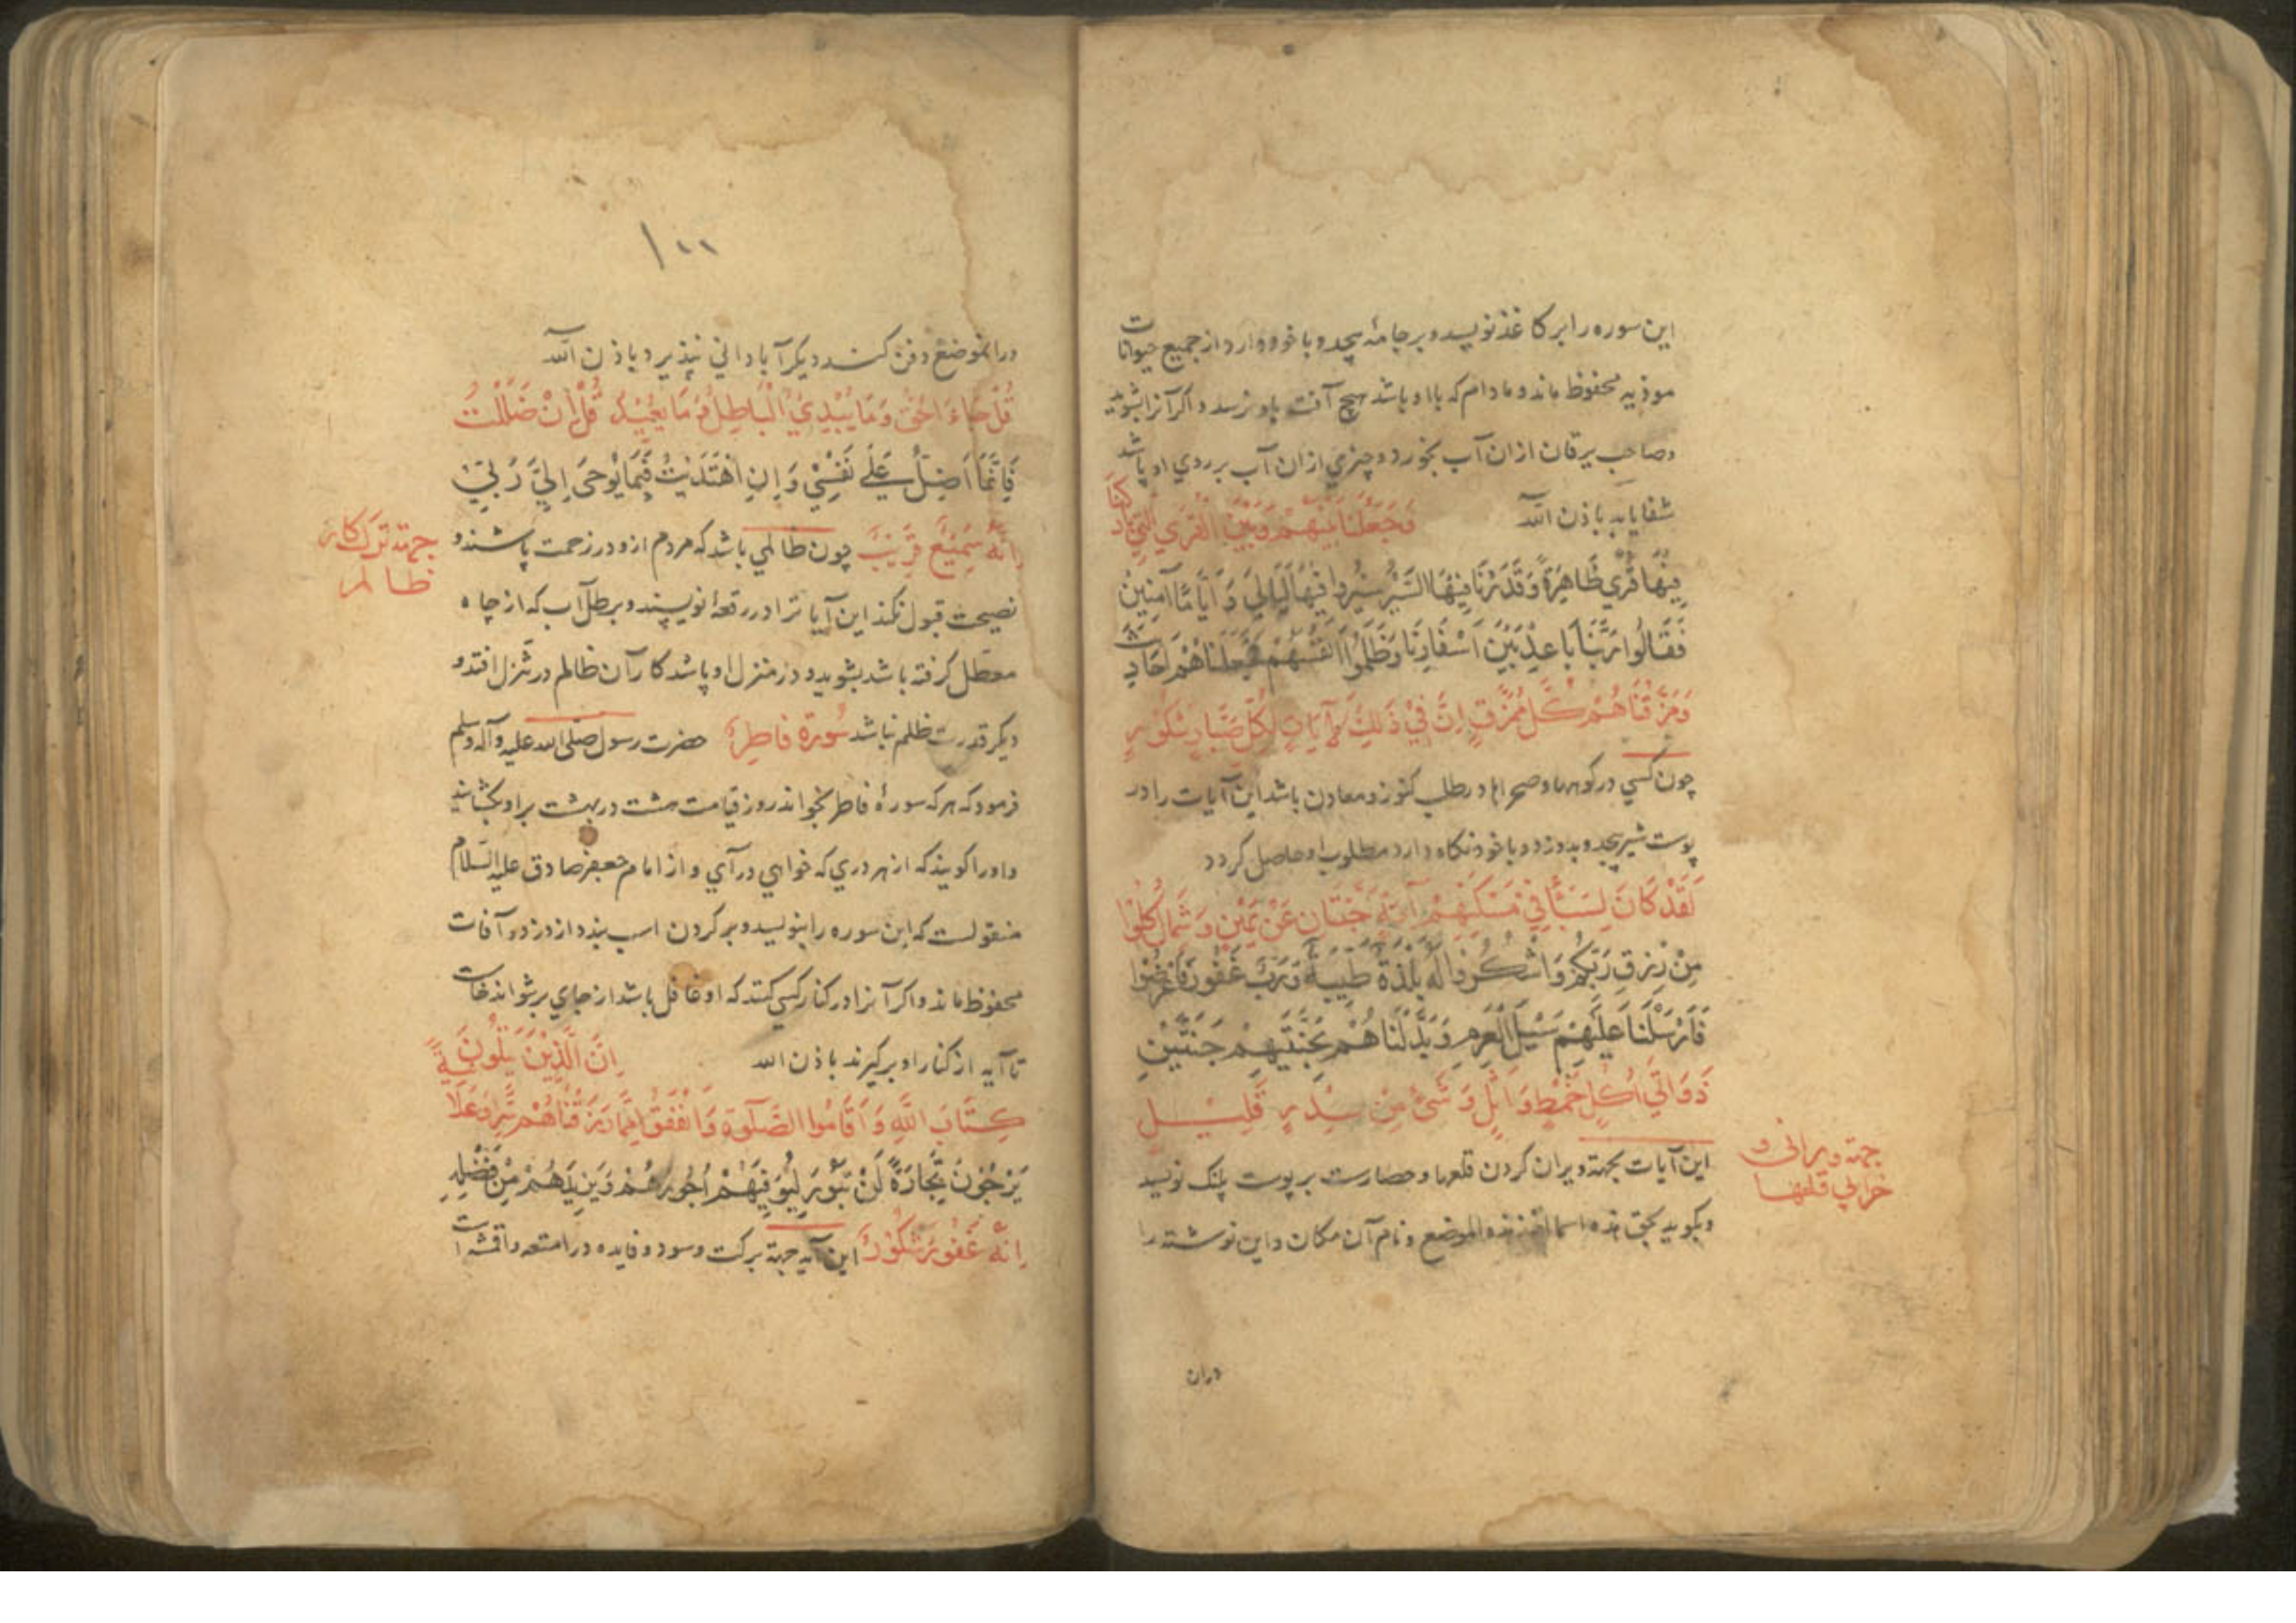 این سوره را بر کاغذ نویسد و بر جامه پیچد و با خود دارد از جمیع حیوانات
موذیه محفوظ ماند و مادام که با او باشد هیچ آفت باو نرسد و اکر آنرا بشوید
و صاحب یرقان ازان آب بخورد و چیزی ازان آب بر روی او پاشد
شفا یابد باذن الله فَجَعَلْنَا بَيْنَهُمْ وَبَيْنَ الْقُرَي الَّتِي بَارَكْنَا
فِيْهَا قُرًي ظَاهِرَةً وَقَدَّرْنَا فِيْهَا السَّيْرَ سِيْرُوا فِيْهَا لَيَالِيَ وَ اَيَّامًا آمِنِيْنَ
فَقَالُوا رَبَّنَا بَاعِدْ بَيْنَ اَسْفَارِنَا وَظَلَمُوا اَنْفُسَهُمْ فَجَعَلْنَاهُمْ اَحَادِيثَ
وَمَزَّقْنَاهُمْ كُلَّ مُمَزَّقٍ اِنَّ فِيْ ذَلِكَ لَآيَاتٍ لِكُلِّ صَبَّارٍ شَكُوْرٍ
چون کسی در کوهها و صحراها در طلب کنوز و معادن باشد این آیات را در
پوست شیر پیچد و بدوزد و با خود نکاه دارد مطلوب او حاصل کردد
لَقَدْ كَانَ لِسَبَإٍ فِيْ مَسْكَنِهِمْ آيَةٌ جَنَّتَانِ عَنْ يَمِيْنٍ وَ شِمَالٍ كُلُوْا
مِنْ رِزْقِ رَبِّكُمْ وَاشْكُرُوْا لَهُ بَلْدَةٌ طَيِّبَةٌ وَرَبٌّ غَفُوْرٌ فَاَعْرَضُوْا
فَاَرْسَلْنَا عَلَيْهِمْ سَيْلَ الْعَرِمِ وَبَدَّلْنَاهُمْ بِجَنَّتَيْهِمْ جَنَّتَيْنِ
ذَوَاتَيْ اُكُلٍ خَمْطٍ وَ اَثْلٍ وَ شَيْءٍ مِنْ سِدْرٍ قَلِيْلٍ
این آیات بجهة ویران کردن قلعها و حصارت بر پوست پلنک نویسد
جهة ویرانی و
خرابی قلعها
و بکوید بحق هذه اسما هذه الموضع و نام آن مکان و این نوشته را
دران
۱۰۰
درانموضع دفن کنند دیکر آبادانی نپذیرد باذن الله
قُلْ جَاءَ الْحَقُّ وَمَا يُبْدِئُ الْبَاطِلُ وَمَا يُعِيْدُ قُلْ اِنْ ضَلَلْتُ
فَاِنَّمَا اَضِلُّ عَلٰي نَفْسِيْ وَاِنِ اهْتَدَيْتُ فَبِمَا يُوْحَى اِلَيَّ رَبِّيْ
اِنَّهُ سَمِيْعٌ قَرِيْبٌ چون ظالمی باشد که مردم ازو در زحمت باشند و
جهة ترک کار
ظالم
نصیحت قبول نکند این آیاترا در رقعهٔ نویسند و بر طل آب که از چاه
معطل کرفته باشد بشوید و در منزل او پاشد کار آن ظالم در تنزل افتد و
دیکر قدرت ظلم نباشد سُورَة فَاطِر حضرت رسول صلی الله علیه وآله وسلم
فرمود که هر که سورهٔ فاطر بخواند روز قیامت هشت در بهشت بر او بکشایند
و او را کویند که از هر دری که خواهی درآی و از امام جعفر صادق علیه السلام
منقولست که این سوره را بنویسد و بر کردن اسب بندد از دزد و آفات
محفوظ ماند و اکر آنرا در کنار کسی کنند که او غافل باشد از جای بر نتواند خاست
تا آید از کنار او بر کیرند باذن الله اِنَّ الَّذِيْنَ يَتْلُوْنَ
كِتَابَ اللّٰهِ وَ اَقَامُوا الصَّلٰوةَ وَ اَنْفَقُوْا مِمَّا رَزَقْنَاهُمْ سِرًّا وَعَلَانِيَةً
يَرْجُوْنَ تِجَارَةً لَنْ تَبُوْرَ لِيُوَفِّيَهُمْ اُجُوْرَهُمْ وَيَزِيْدَهُمْ مِنْ فَضْلِهِ
اِنَّهُ غَفُوْرٌ شَكُوْرٌ این آیه جهة برکت و سود و فایده در امتعه و اقمشه است